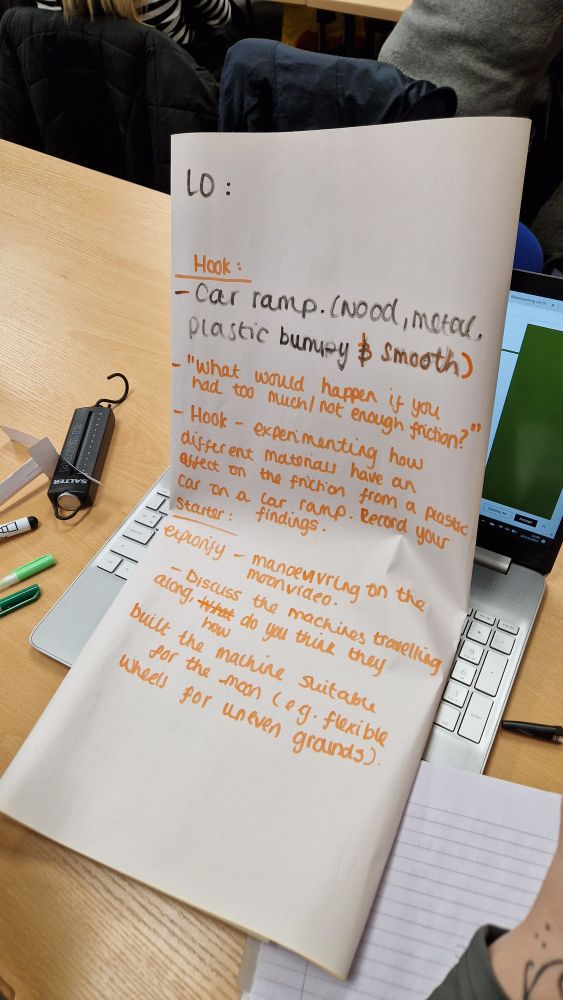 LO :
Hook :
- Car ramp. (wood, metal,
plastic bumpy & smooth)
- "What would happen if you
had too much/not enough friction?"
- Hook - experimenting how
different materials have an
effect on the friction from a plastic
car on a car ramp. Record your
findings.
Starter:
explorify - manoeuvring on the
moon video.
- Discuss the machines travelling
along, What do you think they
how
built the machine suitable
for the moon (e.g. flexible
wheels for uneven grounds).
SALTER